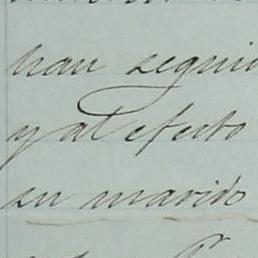 han segui
y al efecto
su marido